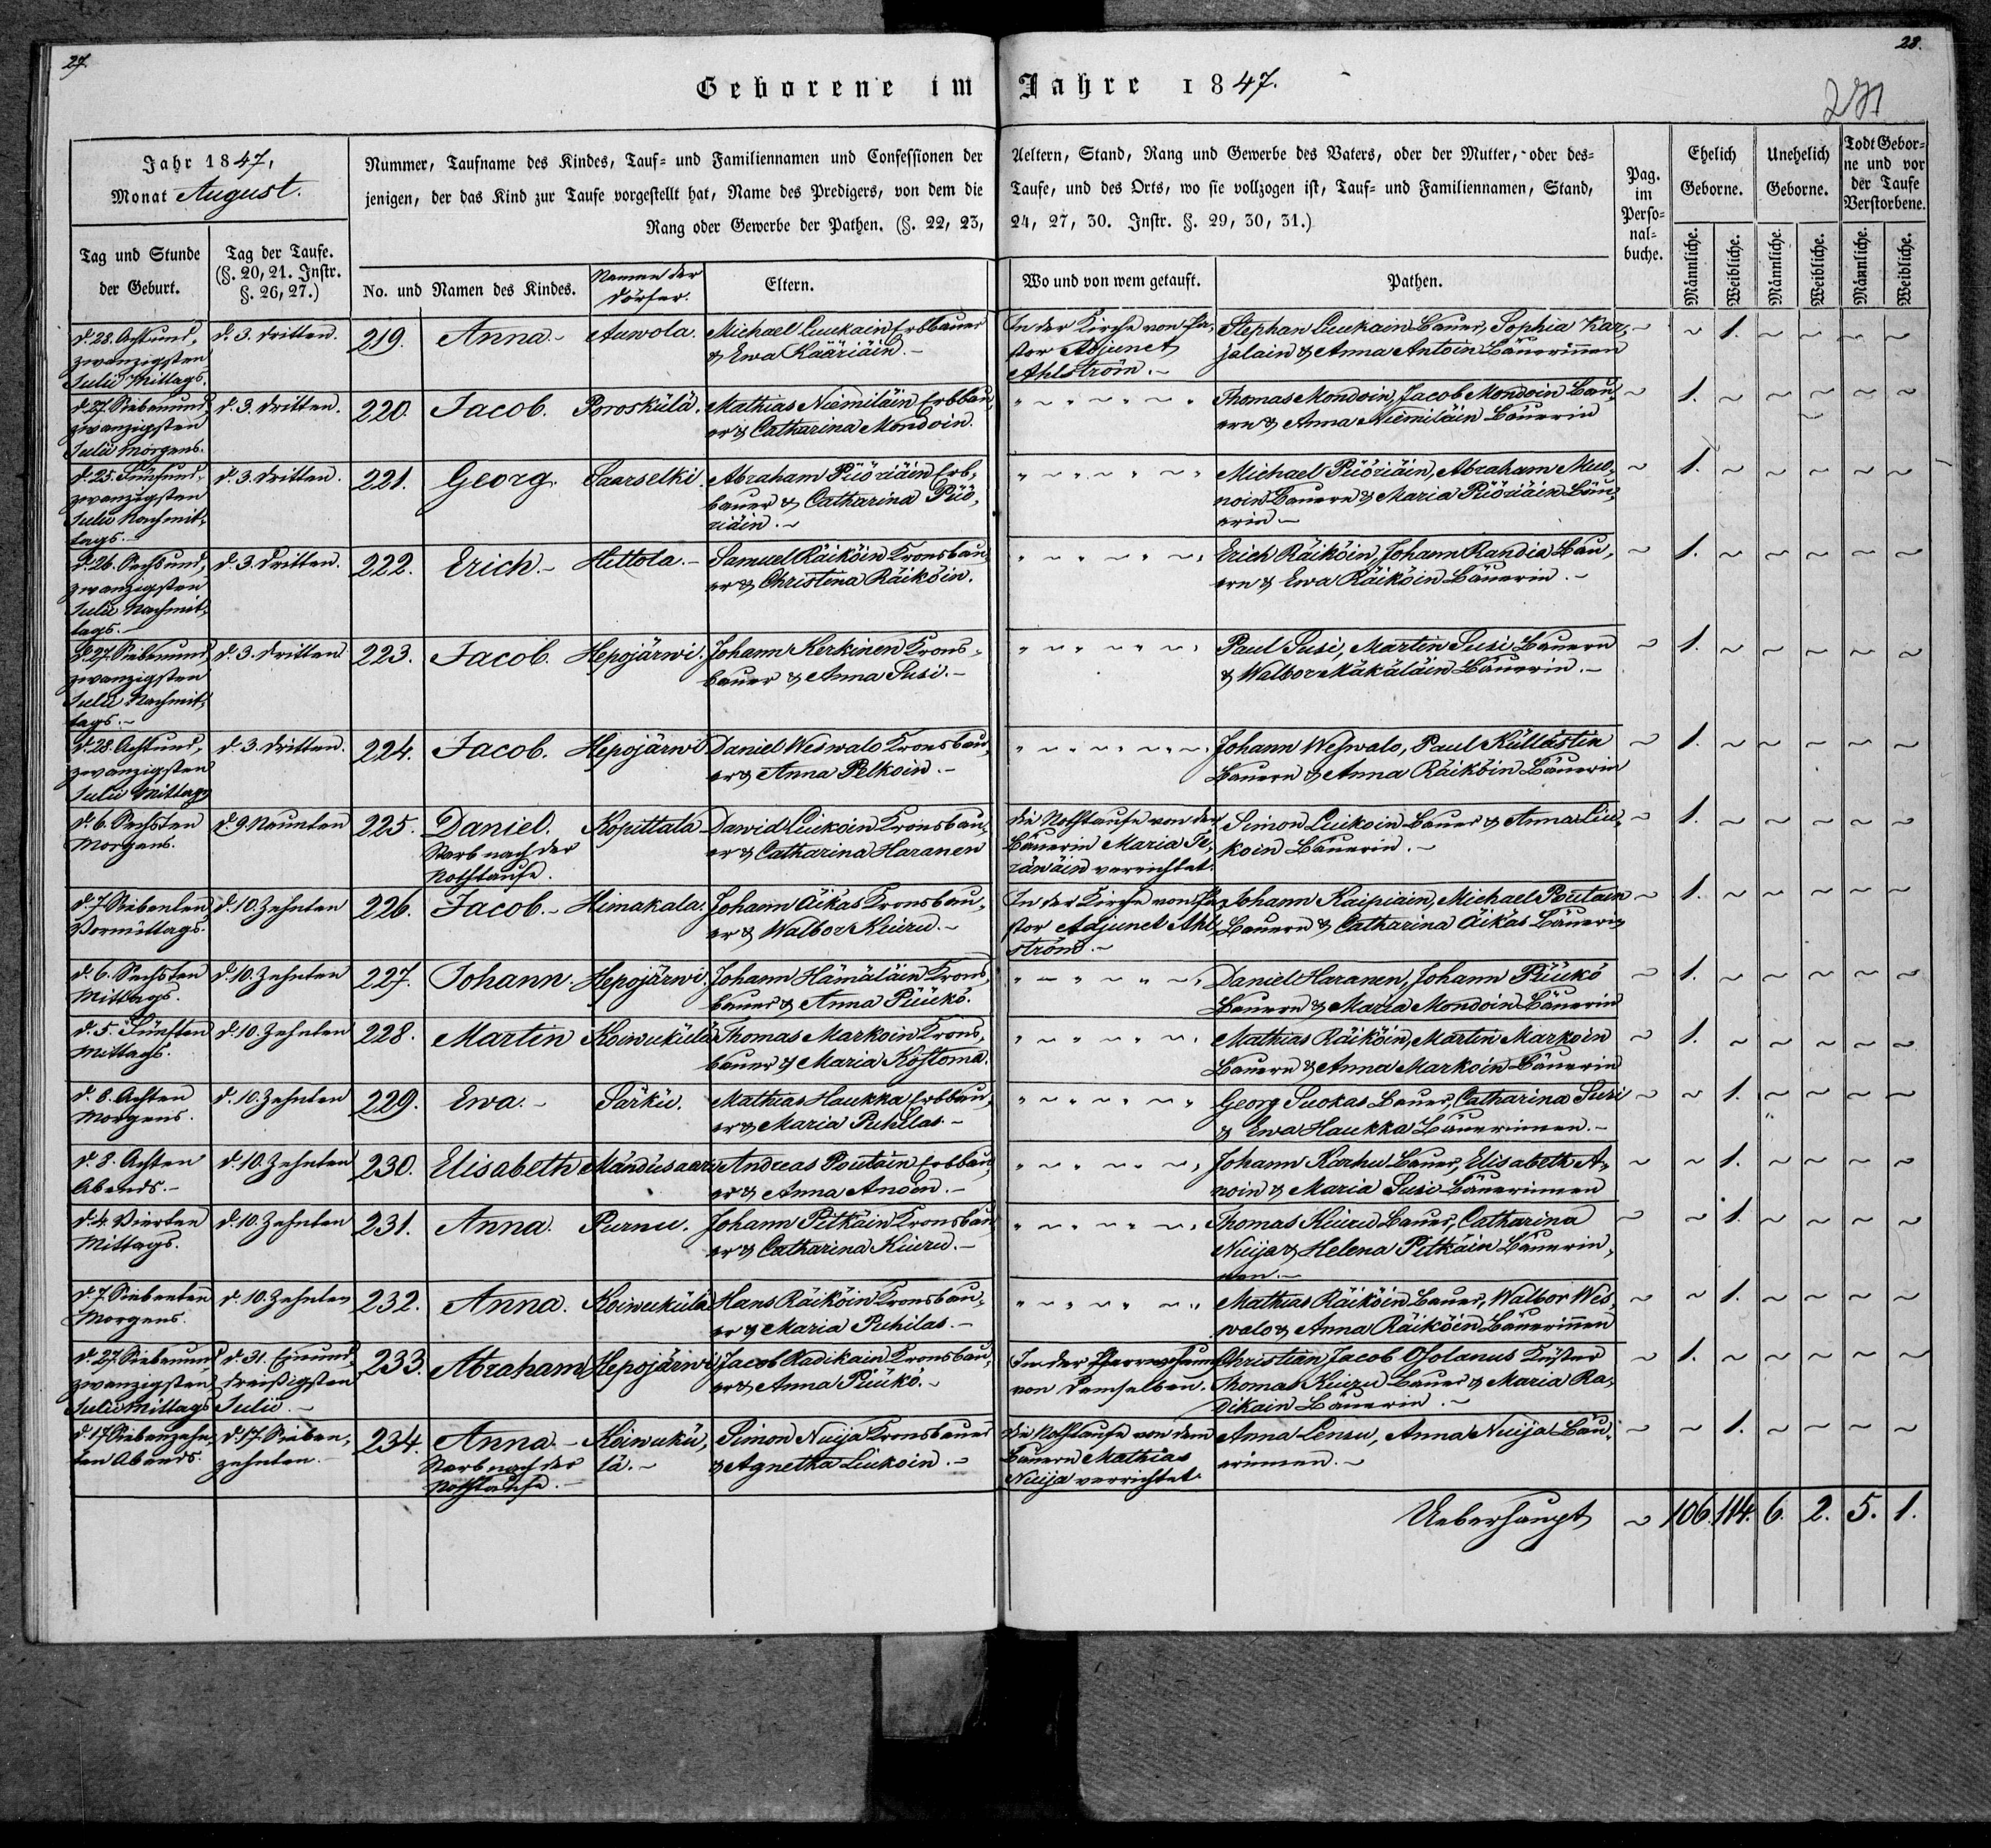 27.
28.
Geborene im Jahre 1847.
271
Jahr 1847,
Monat August.
Nummer, Taufname des Kindes, Tauf= und Familiennamen und Confessionen der Aeltern, Stand, Rang und Gewerbe des Vaters, oder der Mutter, oder des=
jenigen, der das Kind zur Taufe vorgestellt hat, Name des Predigers, von dem die Taufe, und des Orts, wo sie vollzogen ist, Tauf= und Familiennamen, Stand,
Rang oder Gewerbe der Pathen. (§. 22, 23, 24, 27, 30. Instr. §. 29, 30, 31.)
Pag. im Perso= nal= buche.
Ehelich Geborne.
Unehelich Geborne.
Todt Gebor= ne und vor der Taufe Verstorbene.
Tag und Stunde der Geburt.
Tag der Taufe. (§. 20, 21. Instr. §. 26, 27.)
No. und Namen des Kindes.
Namen der Dörfer.
Eltern.
Wo und von wem getauft.
Pathen.
Männliche. Weibliche. Männliche. Weibliche. Männliche. Weibliche.
d. 28. Achtund,
zwanzigsten
Julii Mittags.
d. 3. dritten.
219. Anna.- Auwola.
Michael Luukain Erbbauer
& Ewa Kääriäin.-
In der Kirche von Pa,
stor Adjunct
Ahlström.-
Stephan Luukain Bauer, Sophia Kar,
jalain & Anna Antoin Bäuerinnen
~ ~ 1. ~ ~ ~ ~
d. 27. Siebenund,
zwanzigsten
Julii Morgens.
d. 3. dritten.
220. Jacob. Poroskülä.
Mathias Niemiläin Erbbau,
er & Catharina Mondoin.
" ~ " ~ " ~ "
Thomas Mondoin, Jacob Mondoin Bau,
ern & Anna Niemiläin Bäuerin
~ 1. ~ ~ ~ ~ ~
d. 25. Fünfund,
zwanzigsten
Julii Nachmit,
tags.-
d. 3. dritten.
221. Georg. Saarselki.
Abraham Püöriäin Erb,
bauer & Catharina Püö,
riäin.~
" ~ " ~ " ~ "
Michael Püöriäin, Abraham Muo,
noin Bauern & Maria Püöriäin Bäu,
erin ~
~ 1. ~ ~ ~ ~ ~
d. 26. Sechsund,
zwanzigsten
Julii Nachmit,
tags.-
d. 3. dritten.
222. Erich.- Hittola.-
Samuel Räiköin Kronsbau,
er & Christina Räiköin.
" ~ " ~ " ~ "
Erich Räiköin, Johann Randia Bau,
ern & Ewa Räiköin Bäuerin.-
~ 1. ~ ~ ~ ~ ~
d. 27. Siebenund,
zwanzigsten
Julii Nachmit,
tags.-
d. 3. dritten
223. Jacob. Hepojärwi.
Johann Kerkinen Krons,
bauer & Anna Susi.-
" ~ " ~ " ~ "
Paul Susi, Martin Susi Bauern
& Walbor Mäkäläin Bäuerin.-
~ 1. ~ ~ ~ ~ ~
d. 28. Achtund,
zwanzigsten
Julii Mittag
d. 3. dritten.
224. Jacob. Hepojärwi
Daniel Weswalo Kronsbau,
er & Anna Pelkoin.-
" ~ " ~ " ~ "
Johann Weswalo, Paul Küllästin
Bauern & Anna Räiköin Bäuerin
~ 1. ~ ~ ~ ~ ~
d. 6. Sechsten
Morgens.
d. 9. Neunten
225. Daniel. Kopittala
Starb nach der
Nothtaufe.
Dawid Liukoin Kronsbau,
er & Catharina Haranen
Die Nothtaufe von der
Bäuerin Maria Te,
räwäin verrichtet.
Simon Liukoin Bauer & Anna Liu,
koin Bäuerin.-
~ 1. ~ ~ ~ ~ ~
d. 7. Siebenten
Vormittags.
d. 10. Zehnten
226. Jacob.- Himakala.
Johann Äikäs Kronsbau,
er & Walbor Kiuru.-
In der Kirche von Pa
stor Adjunct Ahl
ström.-
Johann Kaipiain, Michael Poutain
Bauern & Catharina Äikäs Bäuerin
~ 1. ~ ~ ~ ~ ~
d. 6. Sechsten
Mittags.
d. 10. Zehnten
227. Johann. Hepojärwi.
Johann Hämäläin Krons,
bauer & Anna Püükö.
" ~ " ~ " ~ "
Daniel Haranen, Johann Püükö
Bauern & Maria Mondoin Bäuerin
~ 1. ~ ~ ~ ~ ~
d. 5. Fünften
Mittags.
d. 10. Zehnten
228. Martin Koiwukülä
Thomas Markoin Krons,
bauer & Maria Kostoma.
" ~ " ~ " ~ "
Mathias Räiköin, Martin Markoin
Bauern & Anna Markoin Bäuerin
~ 1. ~ ~ ~ ~ ~
d. 8. Achten
Morgens.
d. 10. Zehnten
229. Ewa.- Särkü.
Mathias Haukka Erbbau,
er & Maria Puhilas.-
" ~ " ~ " ~ "
Georg Suokas Bauer, Catharina Susi
& Ewa Haukka Bäuerinnen.-
~ ~ 1. ~ ~ ~ ~
d. 8. Achten
Abends.-
d. 10. Zehnten
230. Elisabeth Mändüsaari
Andreas Poutain Erbbau,
er & Anna Anoin.-
" ~ " ~ " ~ "
Johann Karhu Bauer, Elisabeth A,
noin & Maria Susi Bäuerinnen
~ ~ 1. ~ ~ ~ ~
d. 4. Vierten
Mittags.
d. 10. Zehnten
231. Anna. Purnu.
Johann Pitkäin Kronsbau
er & Catharina Kiuru.-
" ~ " ~ " ~ "
Thomas Kiuru Bauer, Catharina
Nuija & Helena Pitkäin Bäuerin,
nen.-
~ ~ 1. ~ ~ ~ ~
d. 7. Siebenten
Morgens.
d. 10. Zehnten
232. Anna. Koiwukülä
Hans Räiköin Kronsbau,
er & Maria Puhilas.-
" ~ " ~ " ~ "
Mathias Räiköin Bauer, Walbor Wes,
walo & Anna Räiköin Bäuerinnen
~ ~ 1. ~ ~ ~ ~
d. 27. Siebenund
zwanzigsten
Julii Mittags
d. 31. Einund,
dreißigsten
Julii.-
233. Abraham Hepojärwi
Jacob Radikain Kronsbau,
er & Anna Püükö.-
In der
von demselben.
Christian Jacob Osolanus Küster
Thomas Kiuru Bauer & Maria Ra,
dikain Bäuerin.-
~ 1. ~ ~ ~ ~ ~
d. 17. Siebenzehn,
ten Abends.
d. 17. Sieben,
zehnten.
234. Anna.- Koiwukü,
lä.-
Starb nach der
Nothtaufe.-
Simon Nuija Kronsbauer
& Agnetka Liukoin.-
Die Nothtaufe von dem
Bauern Mathias
Nuija verrichtet.
Anna Lensu, Anna Nuija Bäu,
erinnen.-
~ ~ 1. ~ ~ ~ ~
Ueberhaupt ~ 106. 114. 6. 2. 5. 1.